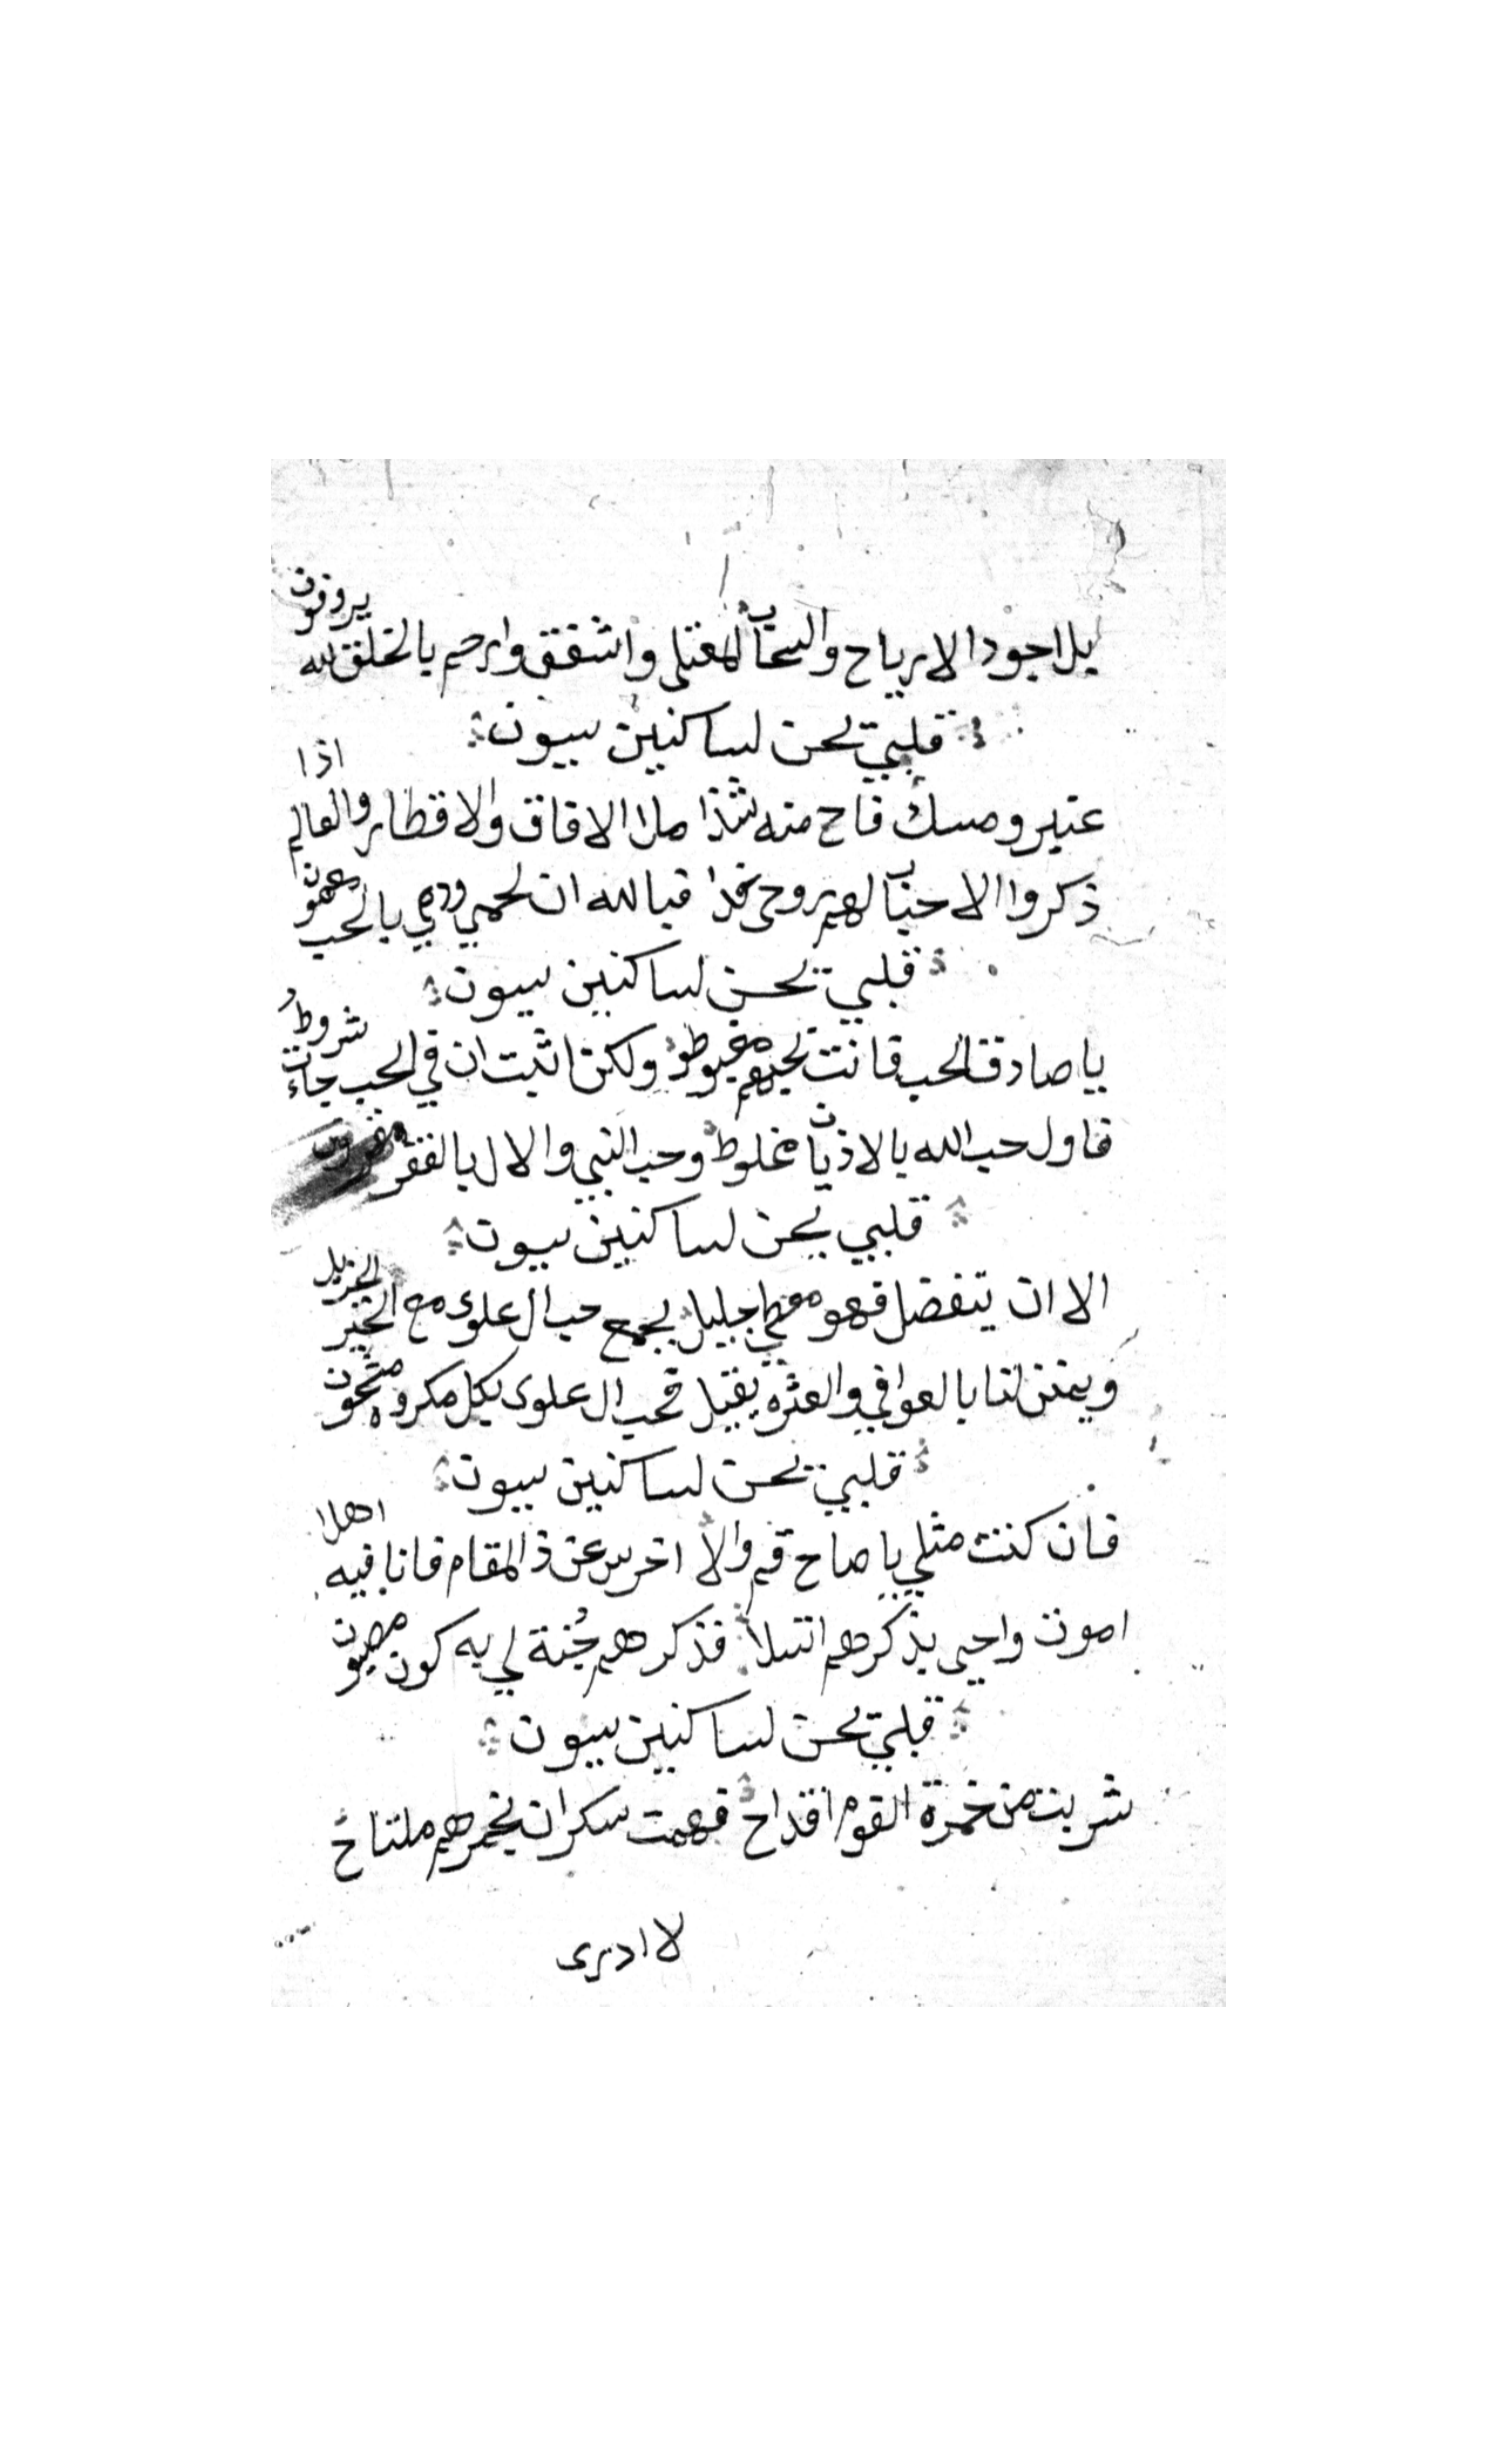 بل اجود الارياح والسحاب المغتلى واشفق وارحم بالخلق لله يروفون
قلبي يحن لساكنين سيون
عنبر ومسك فاح منه شذا ملا الافاق والاقطار والعالم اذا
ذكروا الاحباب لهم روحى فدا فبالله ان لحمي ودمي بالحب معجون
قلبي يحن لساكنين سيون
يا صادق الحب فانت بحبهم مغبوط ولكن اثبت ان في الحب جاءت شروط
فاول حب الله بالاذيات مخلوط وحب النبي والال بالفقر مقرون
قلبي يحن لساكنين سيون
الا ان يتفضل فهو معطي جليل يجمع حب ال علوى مع الخير الجزيل
ويمنن لنا بالعوافي والعثرة يقيل فحب ال علوى بكل مكروه مشحون
قلبي يحن لساكنين سيون
فان كنت مثلي يا صاح قم والا اخرس عن ذ المقام فانا فيه اهلا
اموت واحيى بذكرهم اتسلا فذكرهم جُنة لي به كون مصيون
قلبي يحن لساكنين سيون
شربت من خمرة القوم اقداح فهمت سكران بخمرهم ملتاح
لا ادرى